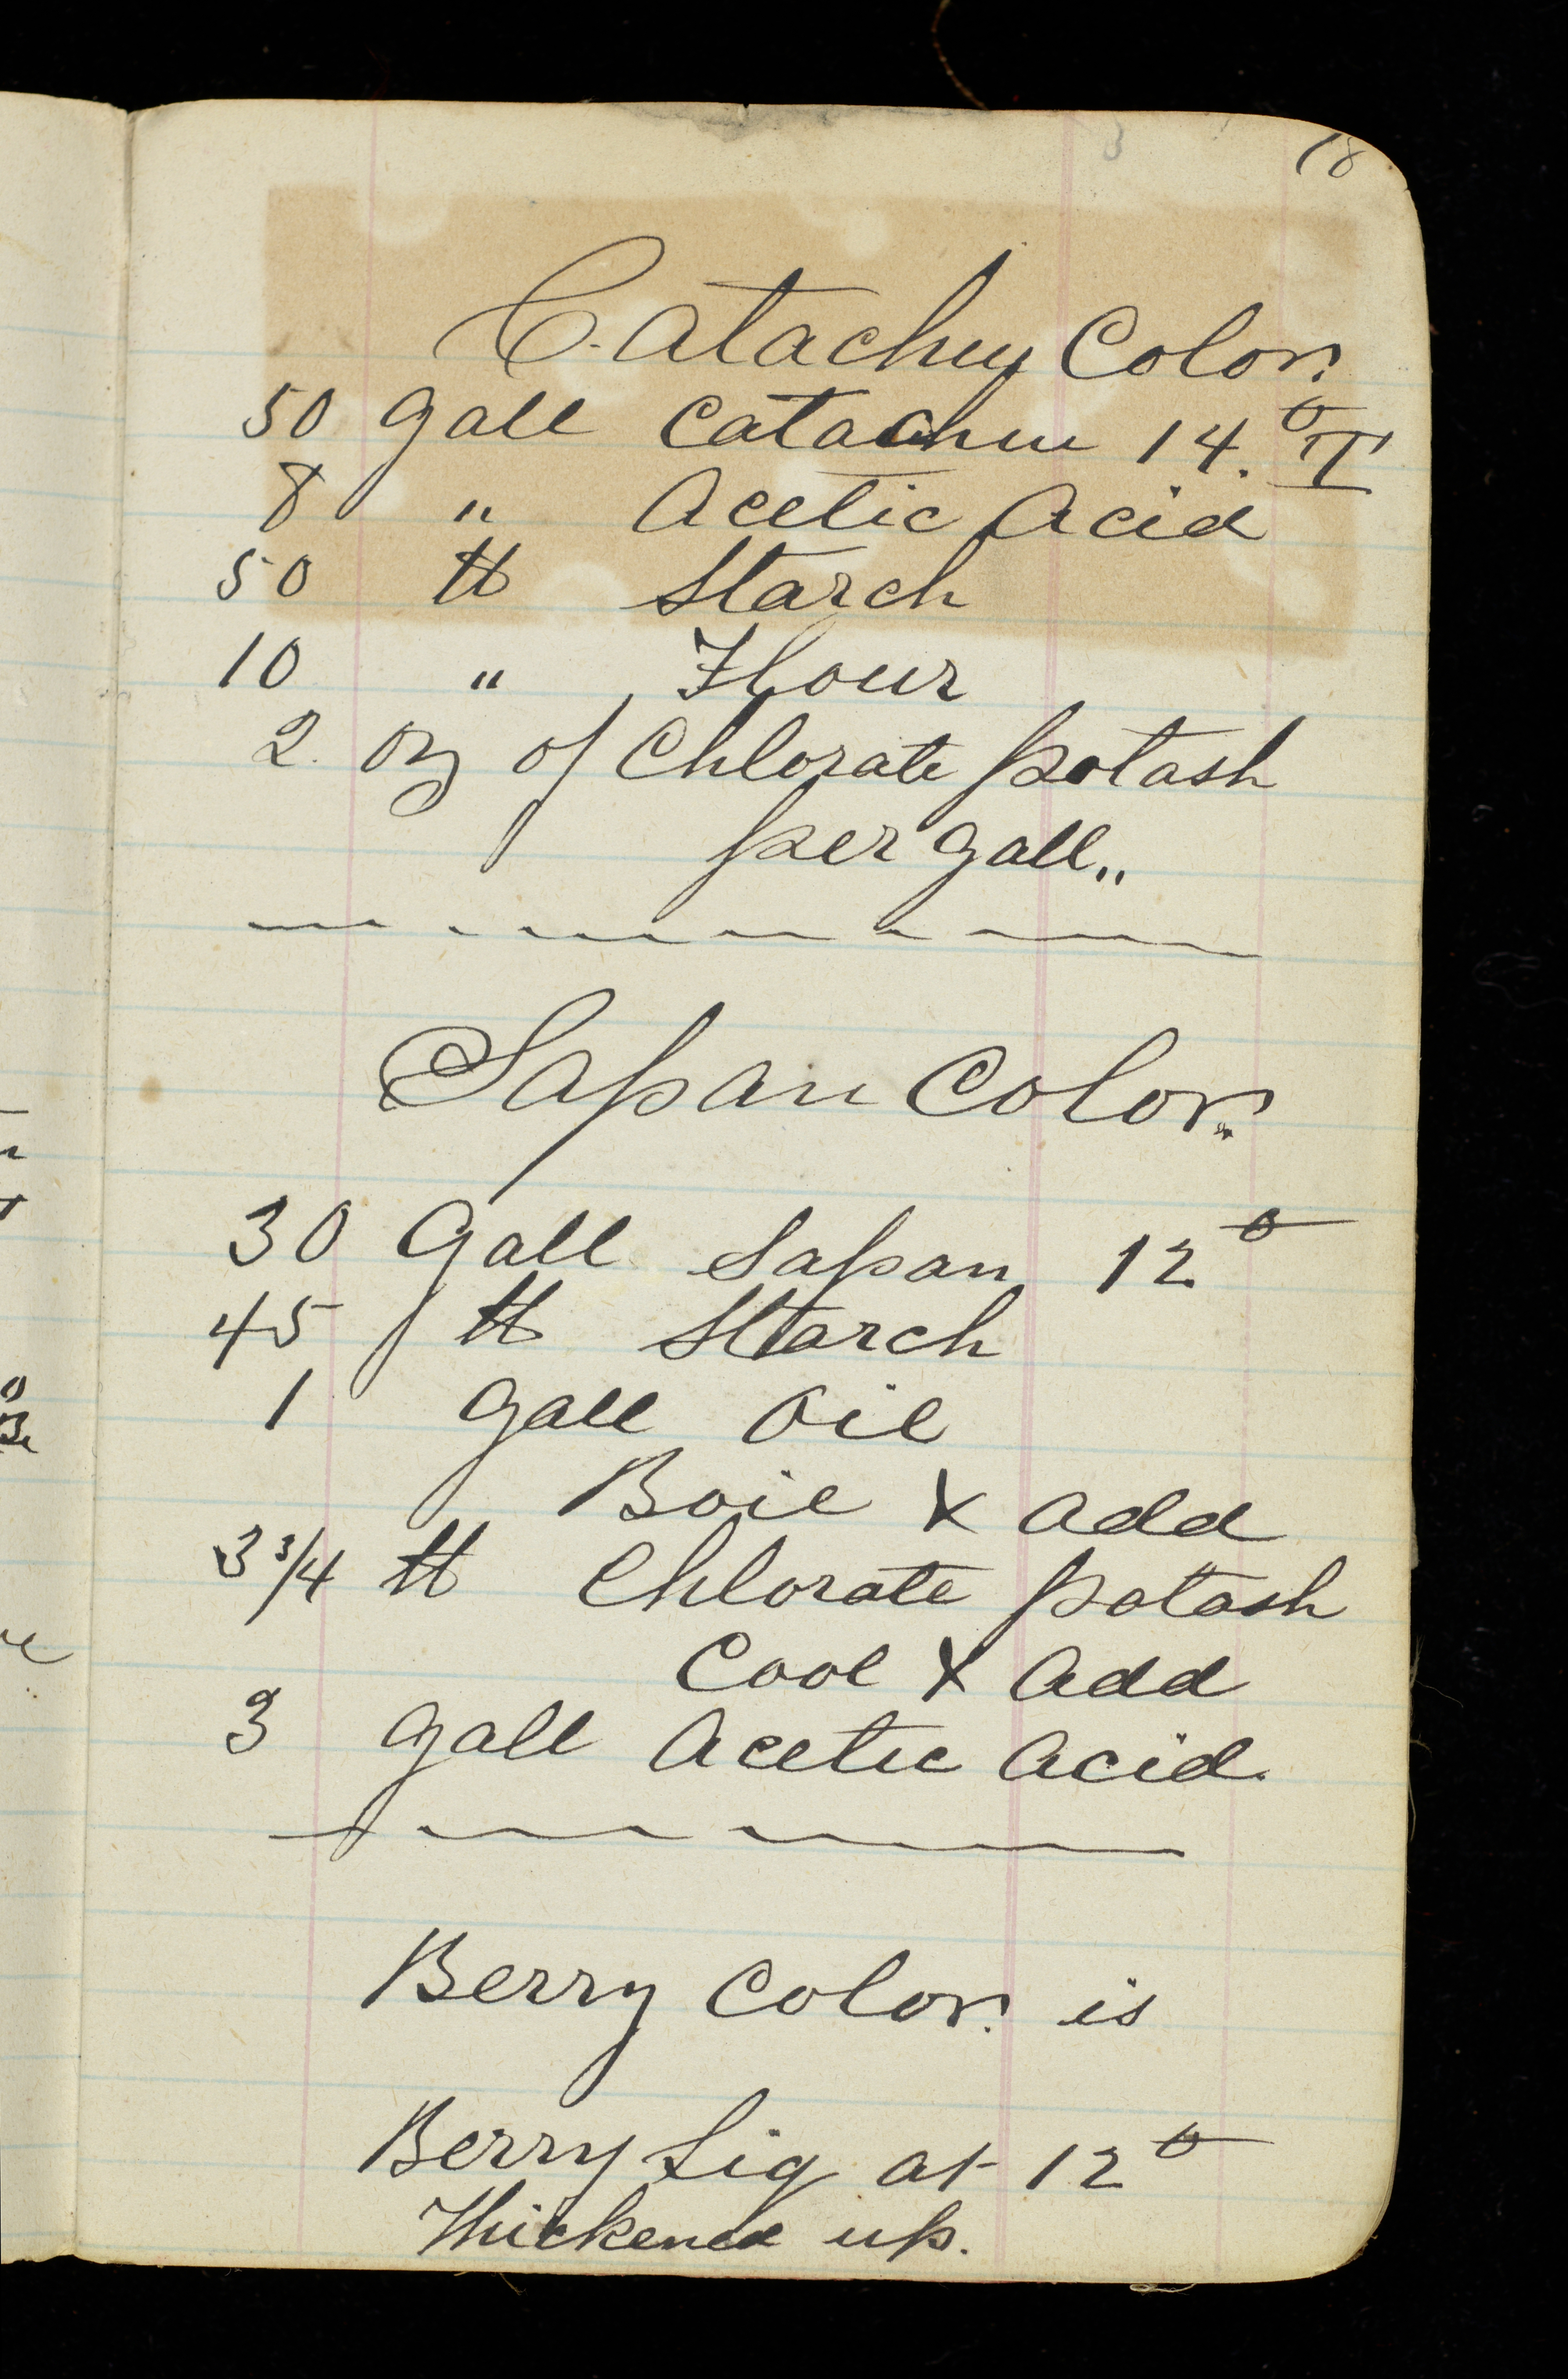 3 18
Catachu Color.
50 Gall Catachu 14.° T
8 " Acetic Acid
50 ℔ Starch
10 " Flour
2. oz of Chlorate potash
per Gall..
Sapan Color.
30 Gall Sapan 12°
45 ℔ Starch
1 Gall Oil
Boil & add
3 3/4 ℔ Chlorate potash
Cool & Add
3 Gall Acetic Acid.
Berry Color. is
Berry Liq at 12°
Thickened up.